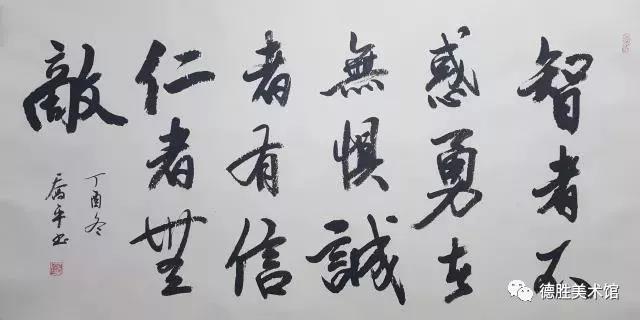 智者不
惑勇者
無懼誠
者有信
仁者無
敵
丁酉冬
平书
德胜美术馆